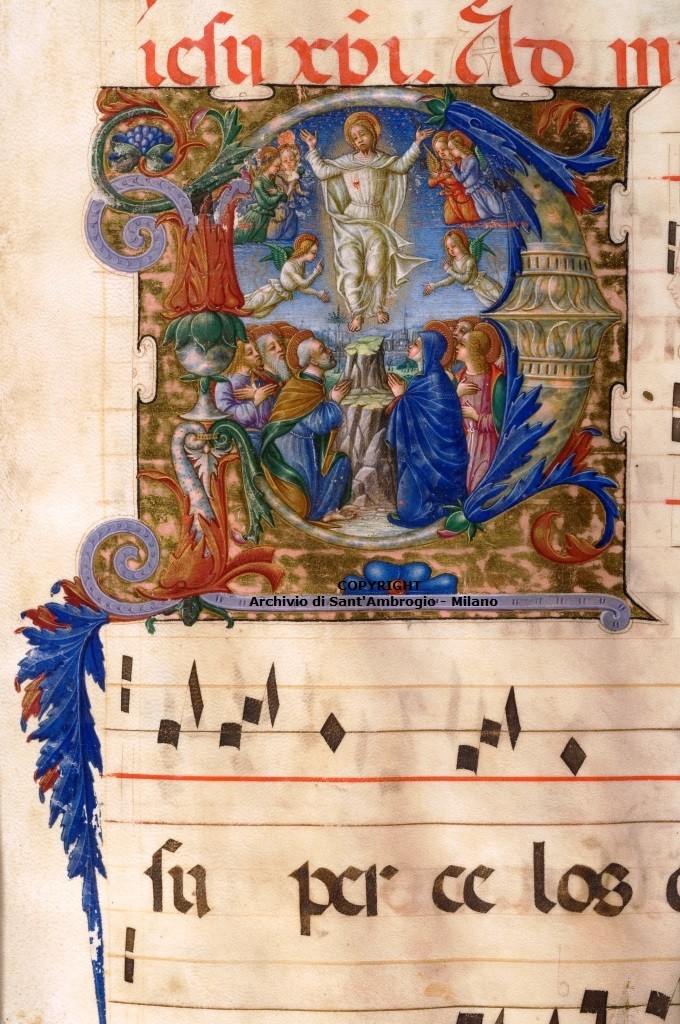 iesu xpi. Ad m
COPYRIGHT
Archivio di Sant'Ambrogio - Milano
su per ce los